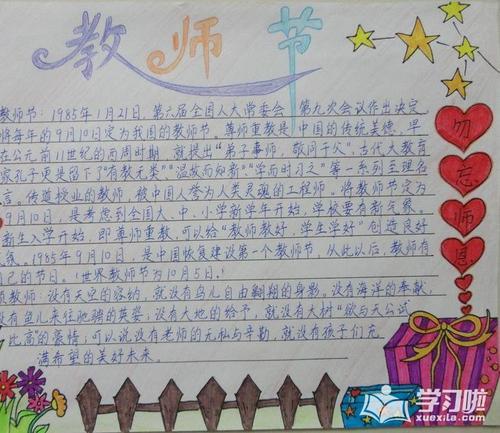 教师节
教师节：1985年1月21日，第六届全国人大常委会 第九次会议作出决定
将每年的9月10日定为我国的教师节。尊师重教是中国的传统美德，早
在公元前11世纪的西周时期，就提出"弟子事师，敬同于父"，古代大教育
家孔子更是留下了"有教无类""温故而知新""学而时习之"等一系列至理名
言。传道授业的教师，被中国人誉为人类灵魂的工程师。将教师节定为
9月10日，是考虑到全国大、中、小学新学年开始，学校要有新气象。
新生入学开始，即尊师重教，可以给"教师教好，学生学好"创造良好
气氛。1985年9月10日，是中国恢复建设第一个教师节，从此以后，教师有
自己的节日。（世界教师节为10月5日。）
教师：没有天空的容纳，就没有鸟儿自由翱翔的身影。没有海洋的奉献，
没有鱼儿来往驰骋的英姿；没有大地的给予，就没有大树"欲与天公试
比高"的豪情；可以说没有老师的无私与辛勤，就没有孩子们充
满希望的美好未来。
勿
忘
师
恩
学习啦
xuexila.com